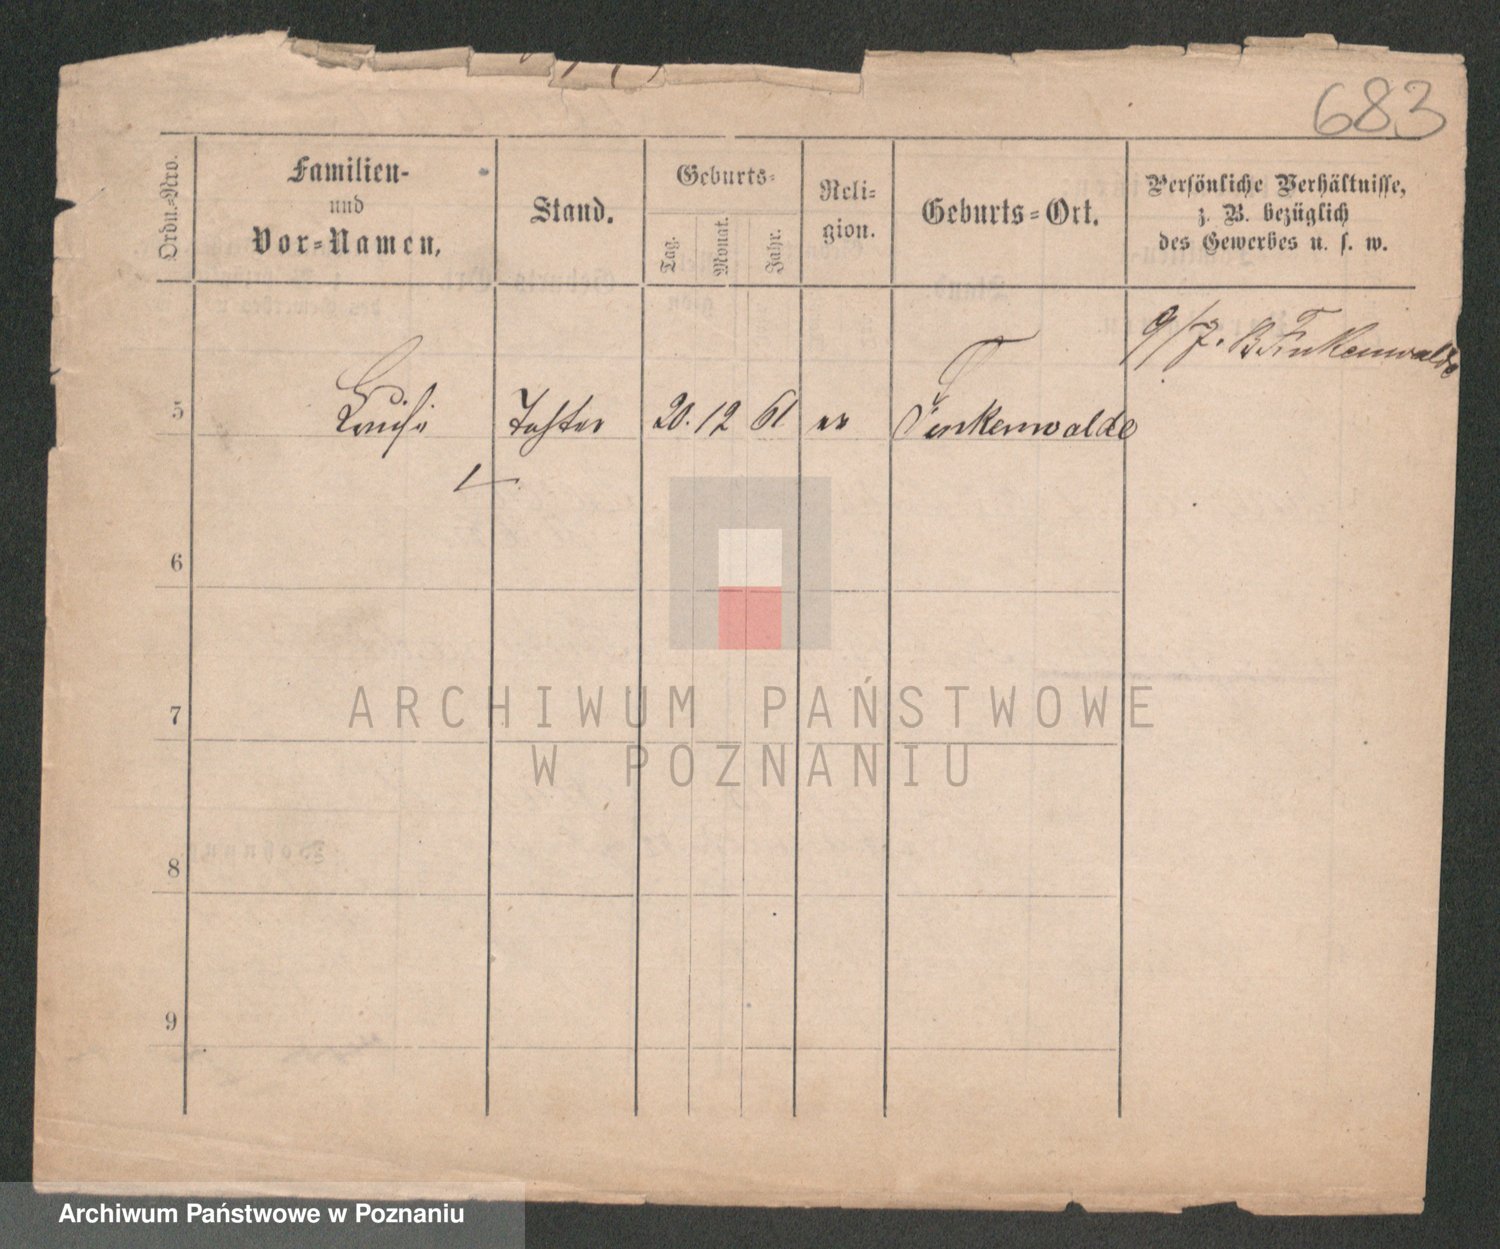 683
Ordn.-Nro.
Familien-
und
Vor-Namen,
Stand.
Geburts-
Tag.
Monat.
Jahr.
Reli-
gion.
Geburts-Ort.
Persönliche Verhältnisse,
z. B. bezüglich
des Gewerbes u. s. w.
9/7. B Finkenwalde
5 Luise Tochter 20. 12 61 ev Finkenwalde
6
7
8
9
ARCHIWUM PAŃSTWOWE
W POZNANIU
Archiwum Państwowe w Poznaniu